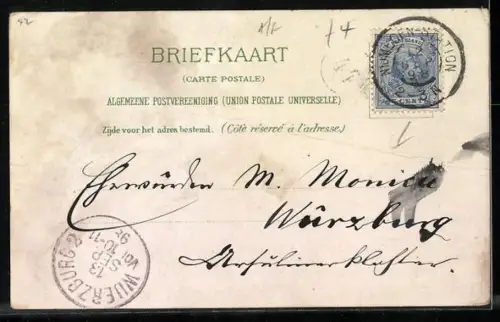 42
BRIEFKAART
(CARTE POSTALE)
ALGEMEENE POSTVEREENIGING (UNION POSTALE UNIVERSELLE)
Zijde voor het adres bestemd. (Côté réservé à l'adresse.)
Ehrwürden M. Monica
Würzburg
Ursulinerkloster.
WUERZBURG 2
13
SEP
VOR 10-11